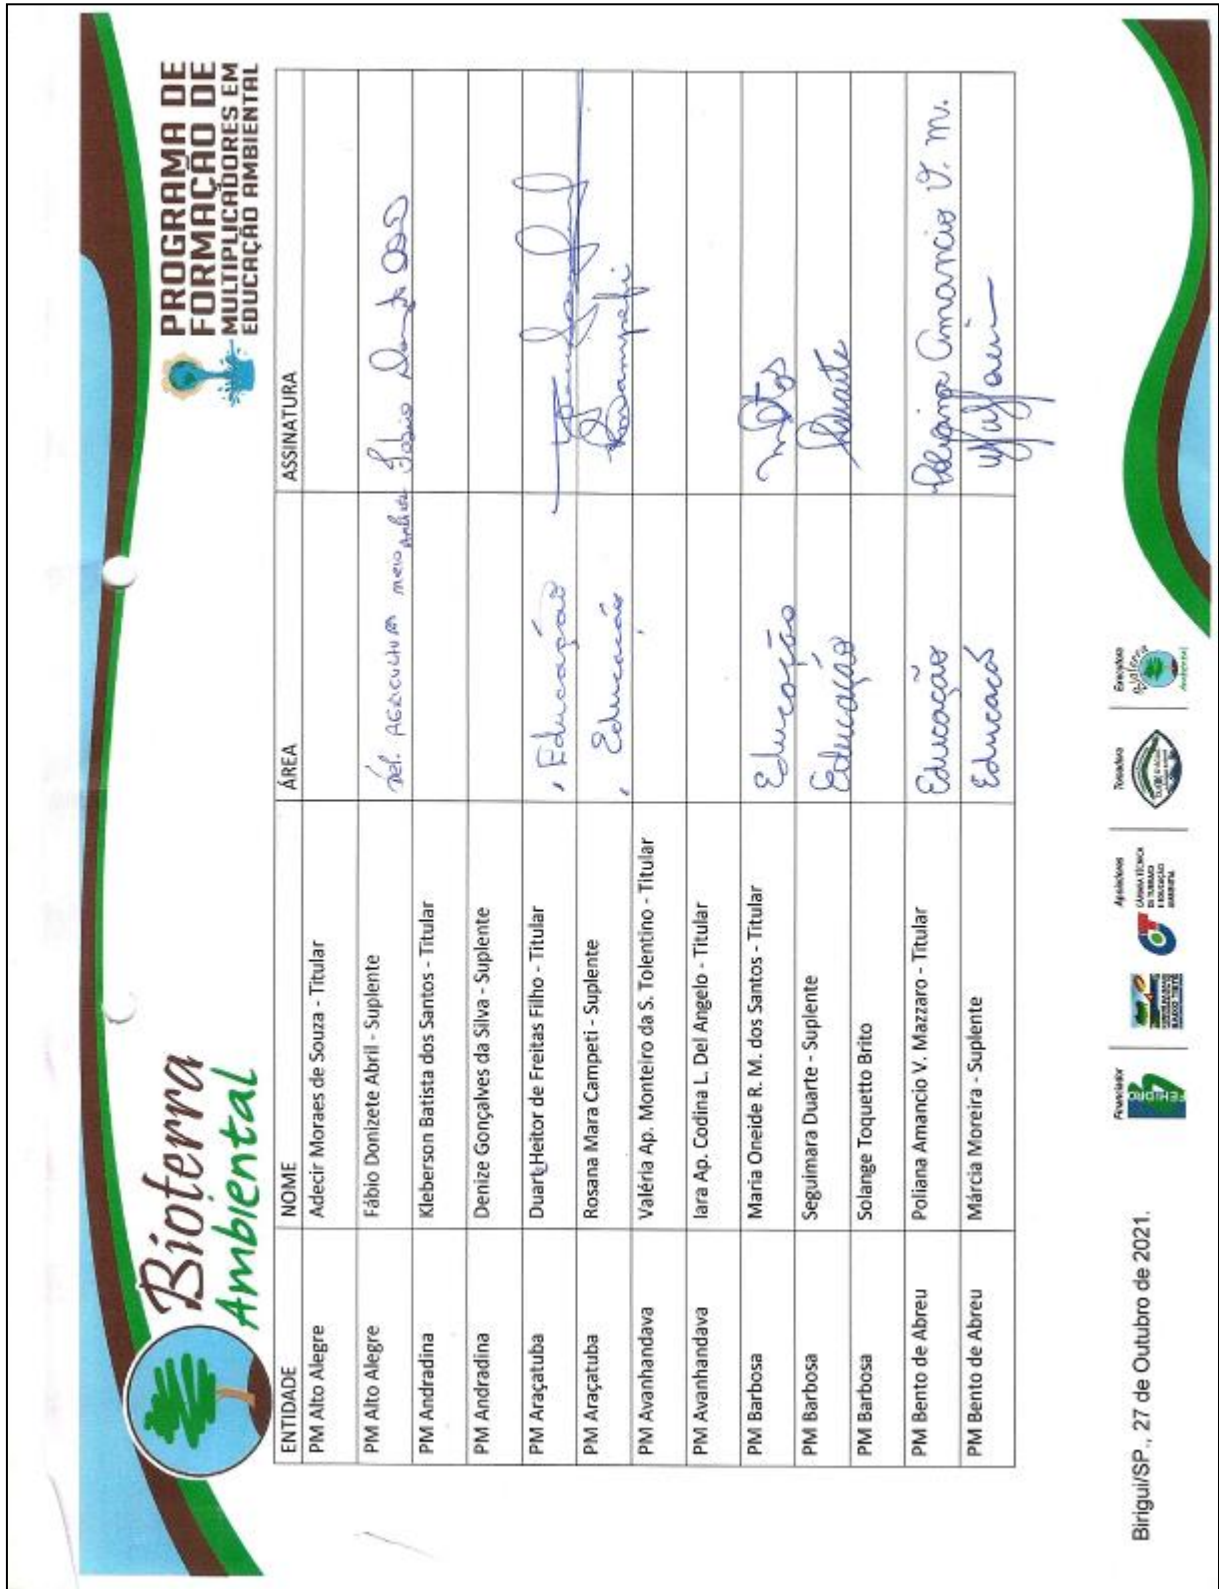 Bioterra
Ambiental
PROGRAMA DE
FORMAÇÃO DE
MULTIPLICADORES EM
EDUCAÇÃO AMBIENTAL
ENTIDADE NOME ÁREA ASSINATURA
PM Alto Alegre Adecir Moraes de Souza - Titular
PM Alto Alegre Fábio Donizete Abril - Suplente AGRICULTURA meio Ambiente Fábio
PM Andradina Kleberson Batista dos Santos - Titular
PM Andradina Denize Gonçalves da Silva - Suplente
PM Araçatuba Duarte Heitor de Freitas Filho - Titular Educação
PM Araçatuba Rosana Mara Campeti - Suplente Educação
PM Avanhandava Valéria Ap. Monteiro da S. Tolentino - Titular
PM Avanhandava Iara Ap. Codina L. Del Angelo - Titular
PM Barbosa Maria Oneide R. M. dos Santos - Titular Educação
PM Barbosa Seguimara Duarte - Suplente Educação Duarte
PM Barbosa Solange Toquetto Brito
PM Bento de Abreu Poliana Amancio V. Mazzaro - Titular Educação Poliana Amancio V. M.
PM Bento de Abreu Márcia Moreira - Suplente Educacão
Birigui/SP., 27 de Outubro de 2021.
Financiador
FEHIDRO
Apoiadores
CÂMARA TÉCNICA
DE TURISMO
E EDUCAÇÃO
AMBIENTAL
Tomadora
Executora
Bioterra
Ambiental